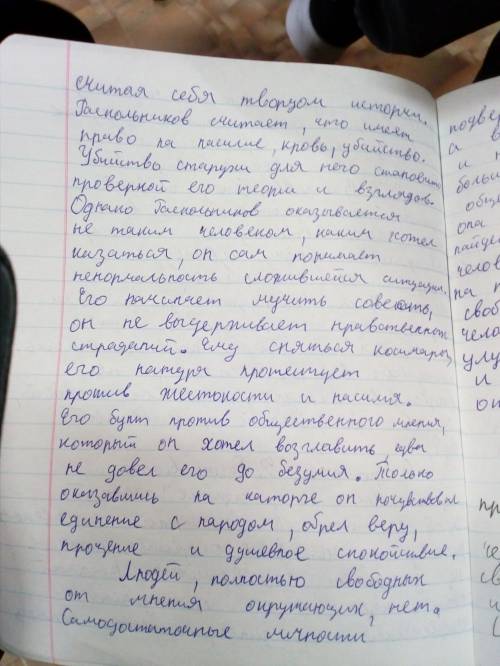 считая себя творцом истории.
Раскольников считает, что имеет
право на насилие, кровь, убийство.
Убийство старухи для него становит
проверкой его теории и взглядов.
Однако Раскольников оказывается
не таким человеком, каким хотел
казаться, он сам понимает
ненормальность сложившейся ситуации.
Его начинает мучить совесть,
он не выдерживает нравственных
страданий. Ему сняться кошмары,
его натура протестует
против жестокости и насилия.
Его бунт против общественного мнения,
который он хотел возглавить, едва
не довел его до безумия. Только
оказавшись на каторге он почувствовал
единение с народом, обрел веру,
прощение и душевное спокойствие.
Людей, полностью свободных
от мнения окружающих, нет.
Самодостаточные личности
подвер
а в
и н
больш
общ
она
найде
челов
на п
своб
чело
улу
и
он
пр